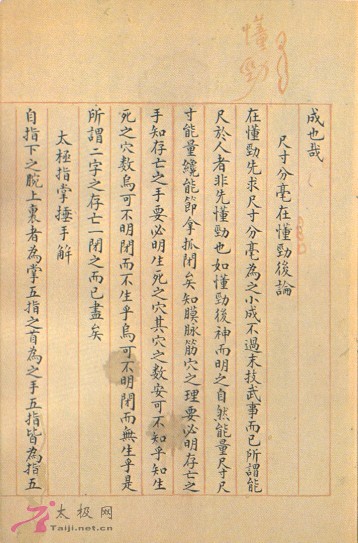 懂勁
成也哉
尺寸分毫在懂勁後論
在懂勁先求尺寸分毫為之小成不過末技武事而已所謂能
尺於人者非先懂勁也如懂勁後神而明之自然能量尺寸尺
寸能量纔能節拿抓閉矣知膜脉筋穴之理要必明存亡之
手知存亡之手要必明生死之穴其穴之數安可不知乎知生
死之穴數烏可不明閉而不生乎烏可不明閉而無生乎是
所謂二字之存亡一閉之而已盡矣
太極指掌捶手解
自指下之腕上裏者為掌五指之首為之手五指皆為指五
太极网
Taiji.net.cn